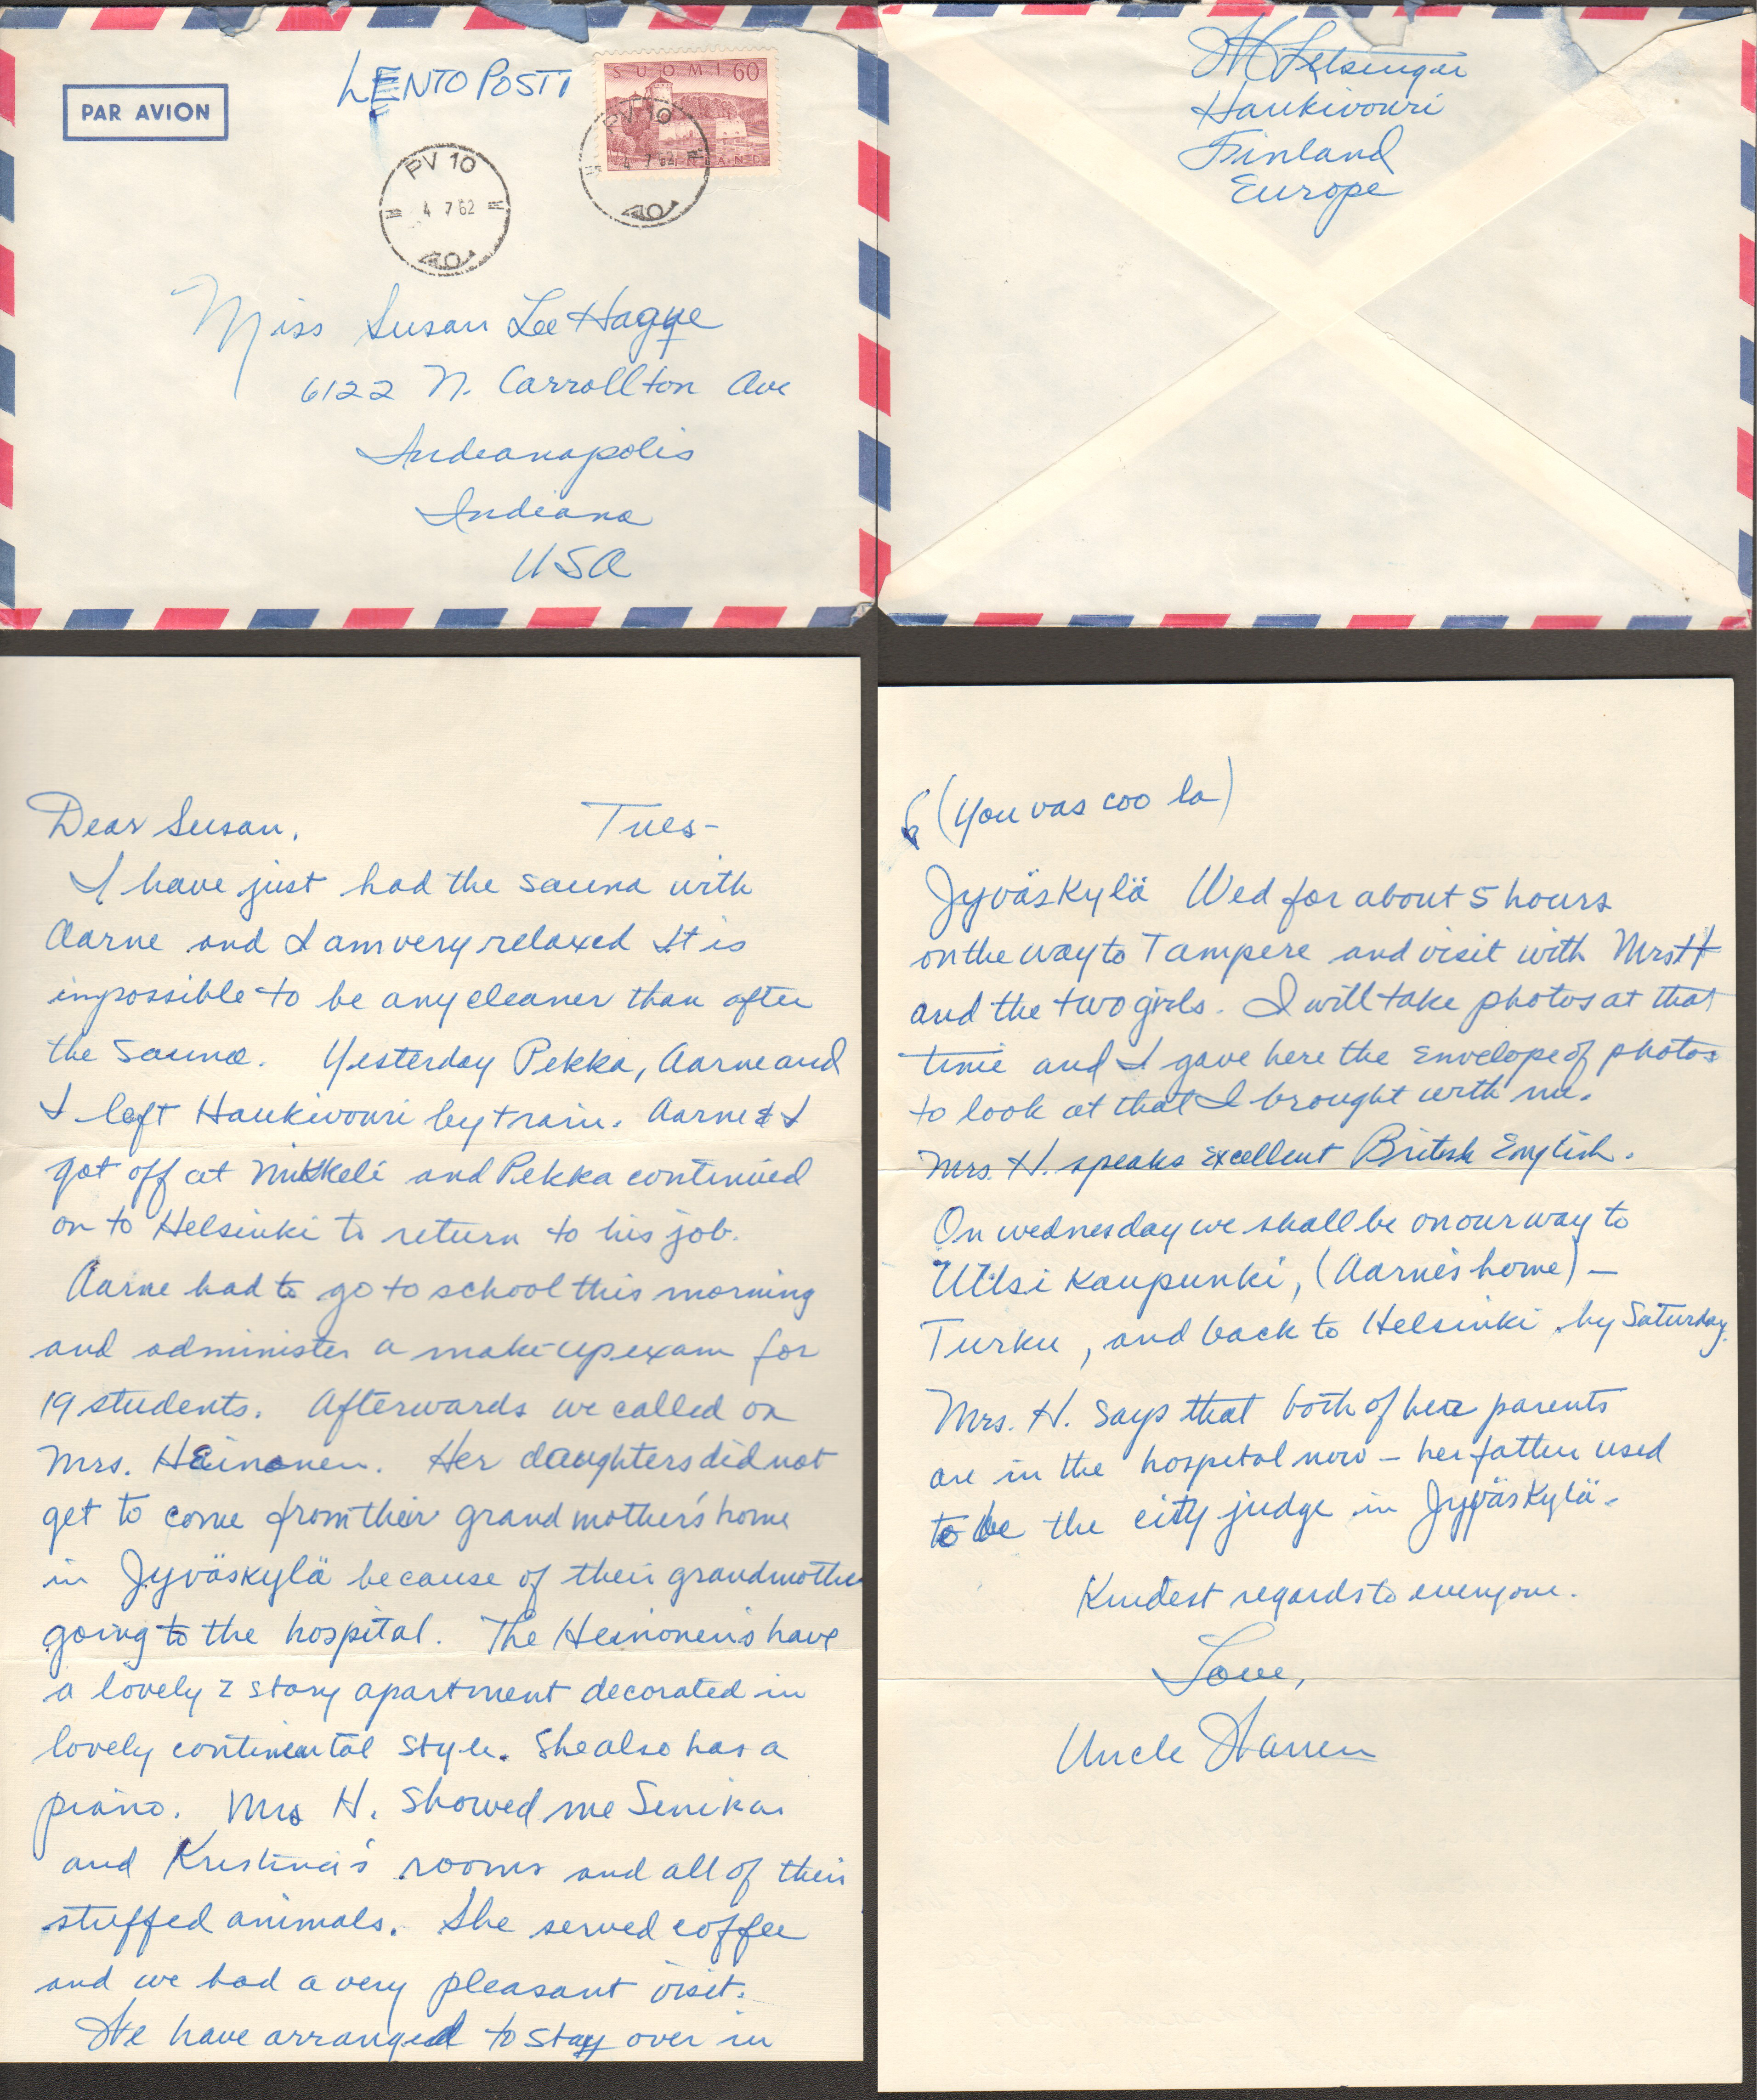 PAR AVION
LENTO POSTI
SUOMI 60
FINLAND
PV 10
4 7 62
PV 10
4 7 62
Miss Susan Lee Hague
6122 N. Carrollton Ave
Indianapolis
Indiana
USA
Letsinger
Haukivouri
Finland
Europe
Dear Susan, Tues-
I have just had the sauna with
Aarne and I am very relaxed It is
impossible to be any cleaner than after
the sauna. Yesterday Pekka, Aarne and
I left Haukivouri by train. Aarne & I
got off at Mikkeli and Pekka continued
on to Helsinki to return to his job.
Aarne had to go to school this morning
and administer a make-up exam for
19 students. Afterwards we called on
Mrs. Heinonen. Her daughters did not
get to come from their grandmother's home
in Jyväskylä because of their grandmother
going to the hospital. The Heinonen's have
a lovely 2 story apartment decorated in
lovely continental style. She also has a
piano. Mrs H. showed me
and Kristina's rooms and all of their
stuffed animals. She served coffee
and we had a very pleasant visit.
We have arranged to stay over in
(You vas coo la)
Jyväskylä Wed for about 5 hours
on the way to Tampere and visit with Mrs H
and the two girls. I will take photos at that
time and I gave here the envelope of photos
to look at that I brought with me.
Mrs. H. speaks excellent British English.
On wednesday we shall be on our way to
Kaupunki, (Aarne's home) -
Turku, and back to Helsinki by Saturday.
Mrs. H. says that both of her parents
are in the hospital now - her father used
to be the city judge in Jyväskylä.
Kindest regards to everyone.
Love,
Uncle Warren